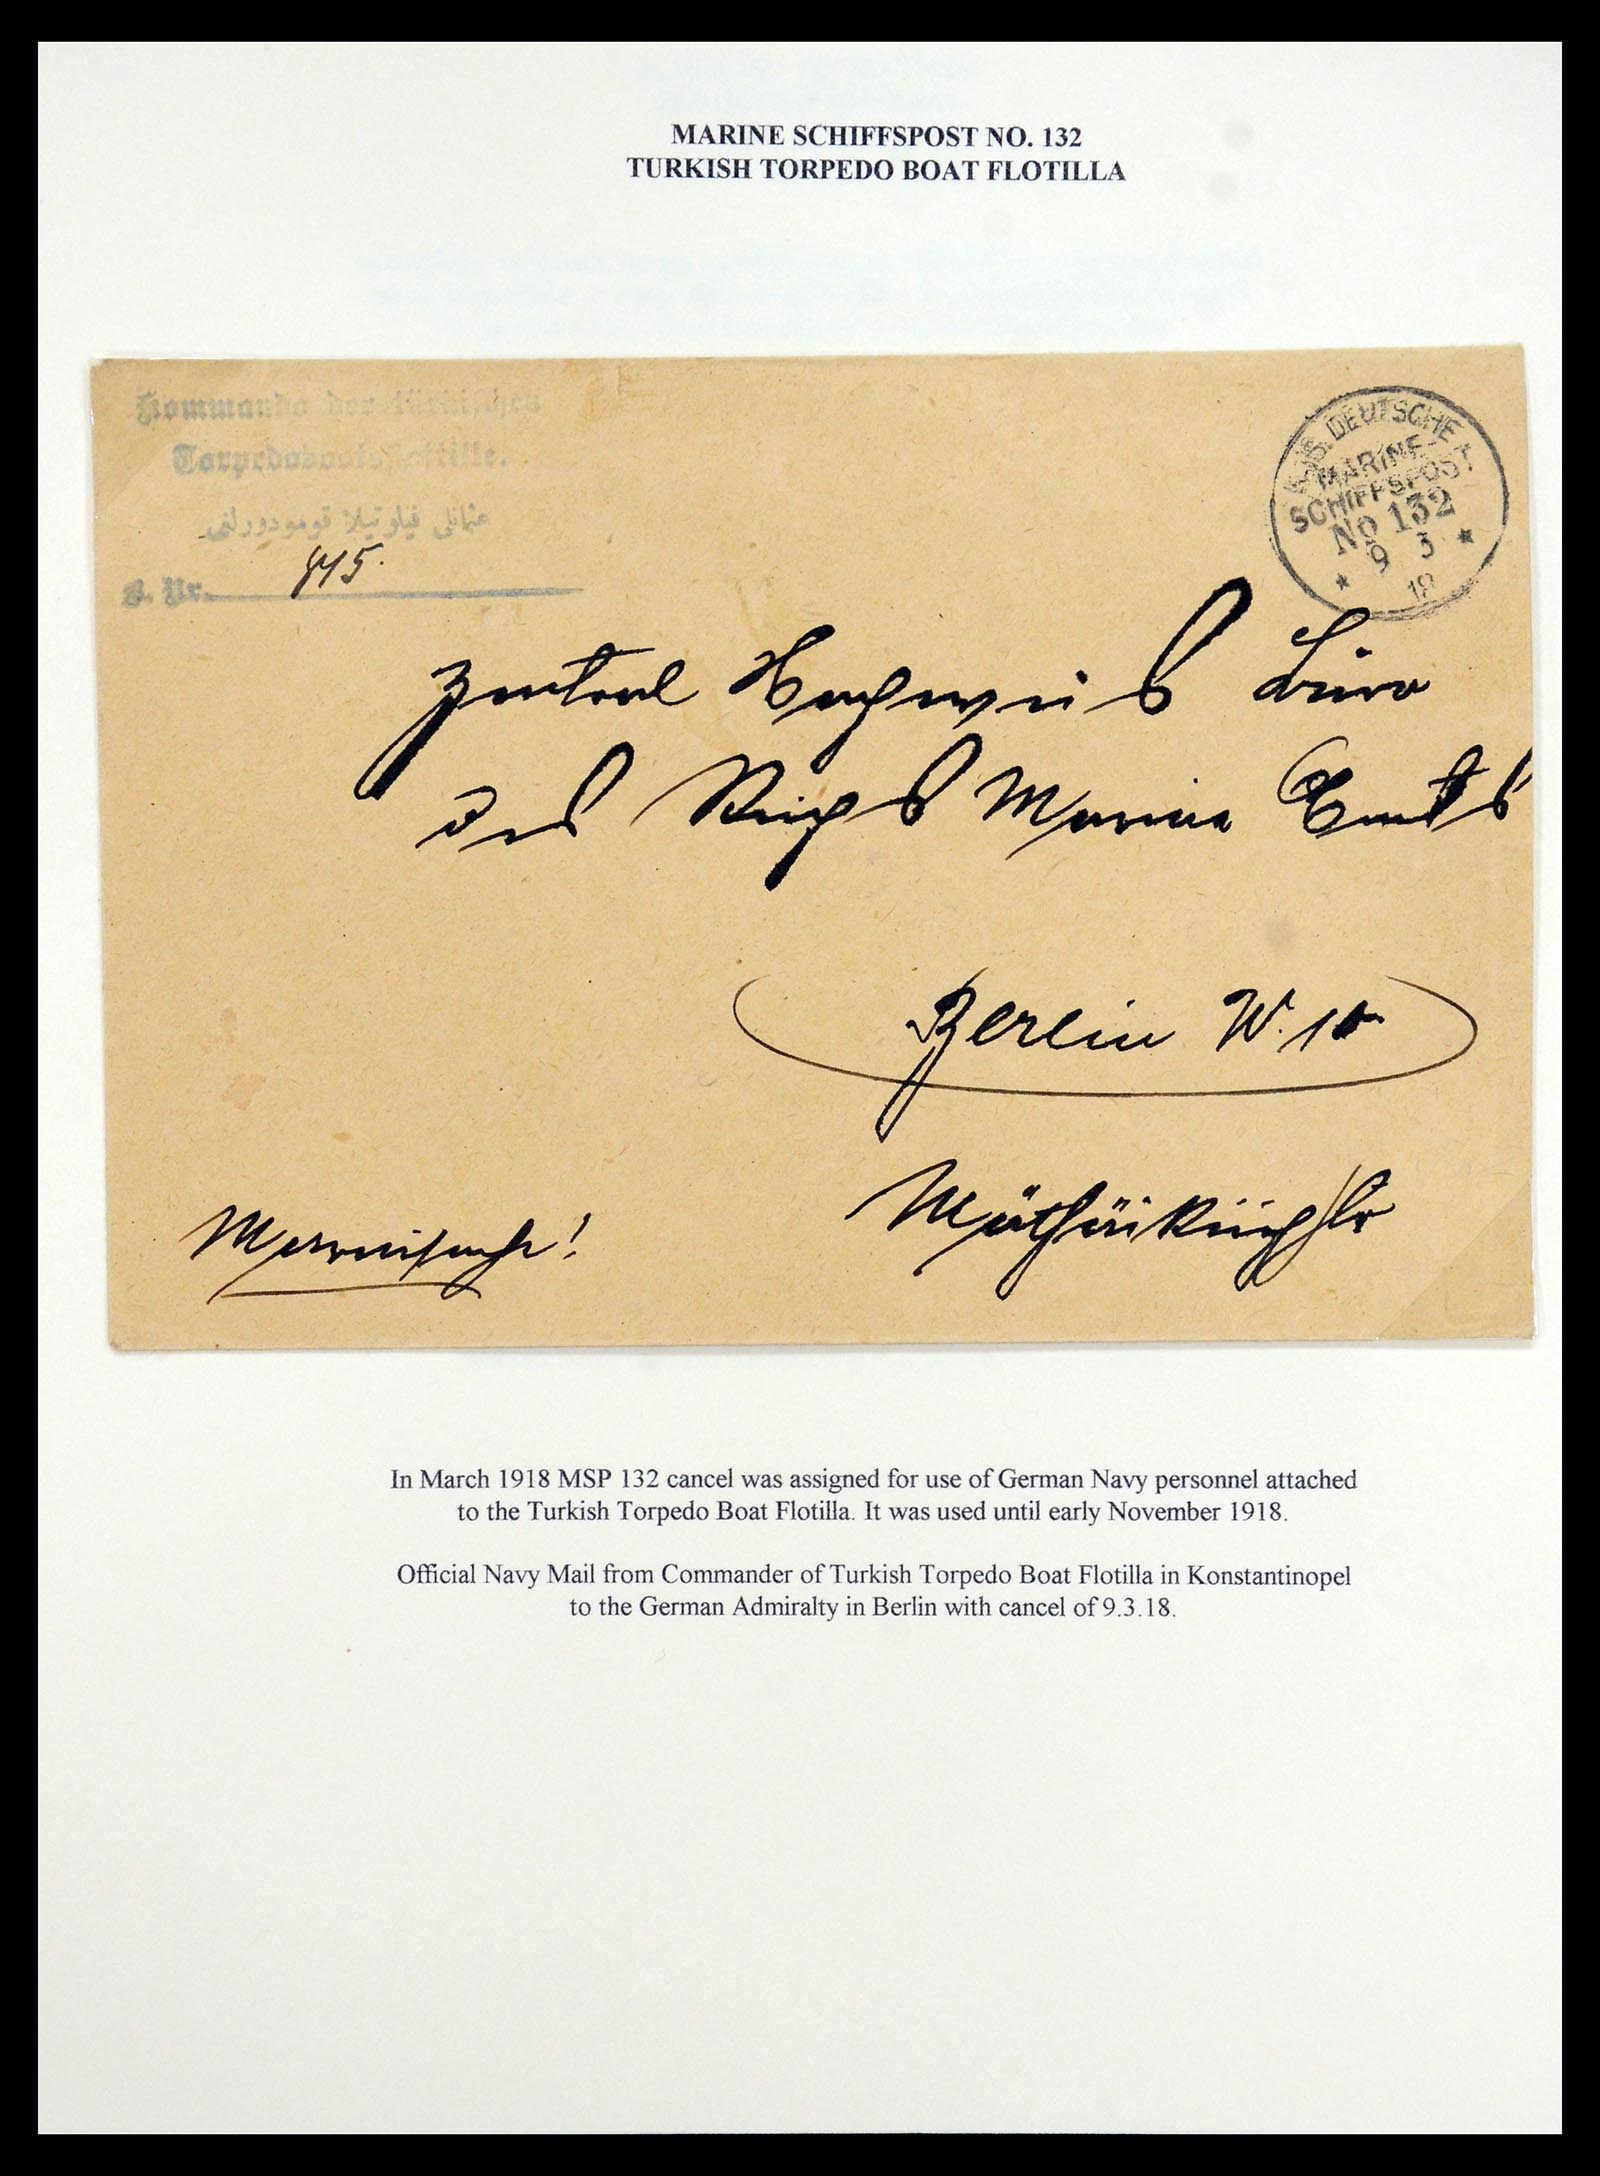 MARINE SCHIFFSPOST NO. 132
TURKISH TORPEDO BOAT FLOTILLA
Kommando der türkischen
Torpedobootsflottille.
عثمانلی فیلوتیلا قومودورلغی
B. Nr. 815.
KAIS. DEUTSCHE
MARINE-
SCHIFFSPOST
No 132
9 3
18
Zentral Nachweis Büro
des Reichs Marine Amts
Berlin W. 10
Matthäikirchstr
Marinesache!
In March 1918 MSP 132 cancel was assigned for use of German Navy personnel attached
to the Turkish Torpedo Boat Flotilla. It was used until early November 1918.
Official Navy Mail from Commander of Turkish Torpedo Boat Flotilla in Konstantinopel
to the German Admiralty in Berlin with cancel of 9.3.18.